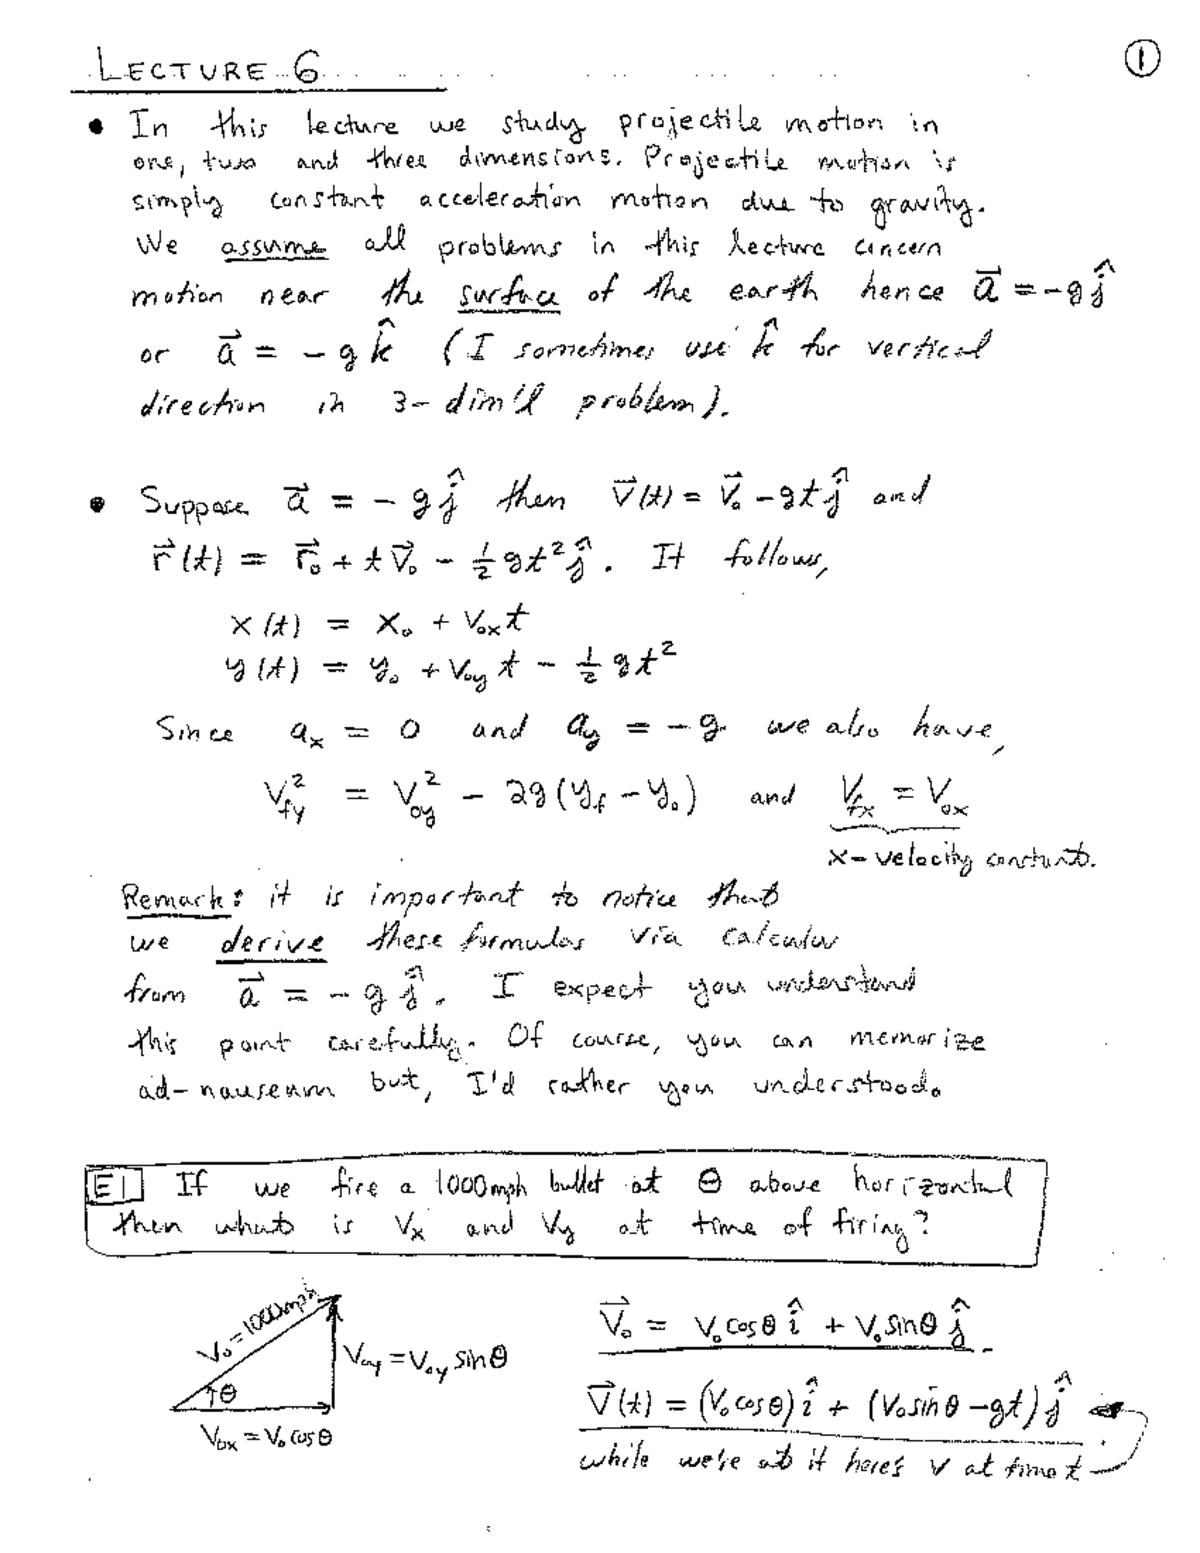 LECTURE 6
①
• In this lecture we study projectile motion in
one, two and three dimensions. Projectile motion is
simply constant acceleration motion due to gravity.
We assume all problems in this lecture concern
motion near the surface of the earth hence a⃗ = -g ĵ
or a⃗ = -g k̂ (I sometimes use k̂ for vertical
direction in 3-dim'l problem).
• Suppose a⃗ = -g ĵ then v⃗(t) = v⃗₀ - gt ĵ and
r⃗(t) = r⃗₀ + t v⃗₀ - ½ gt² ĵ. It follows,
x(t) = x₀ + v₀ₓt
y(t) = y₀ + v_oy t - ½ gt²
Since aₓ = 0 and a_y = -g we also have,
V_fy² = V_oy² - 2g(y_f - y₀) and V_fx = V_ox
x-velocity constant.
Remark: it is important to notice that
we derive these formulas via calculus
from a⃗ = -g ĵ. I expect you understand
this point carefully. Of course, you can memorize
ad-nauseam but, I'd rather you understood.
E1 If we fire a 1000mph bullet at θ above horizontal
then what is Vₓ and V_y at time of firing?
V₀ = 1000mph
θ
V_oy = V_oy sinθ
V_ox = V₀ cosθ
V⃗₀ = V₀cosθ î + V₀sinθ ĵ.
V⃗(t) = (V₀cosθ) î + (V₀sinθ - gt) ĵ
while we're at it here's v at time t